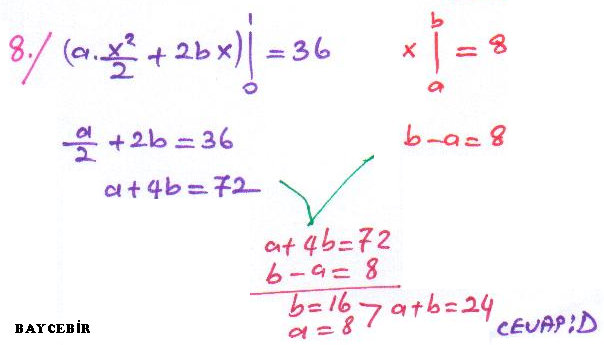 8./ (a.x²/2 + 2bx)|₀¹ = 36
x|ₐᵇ = 8
a/2 + 2b = 36
b-a = 8
a+4b = 72
a+4b=72
b-a= 8
b=16
a=8 > a+b=24
CEVAP:D
BAYCEBİR